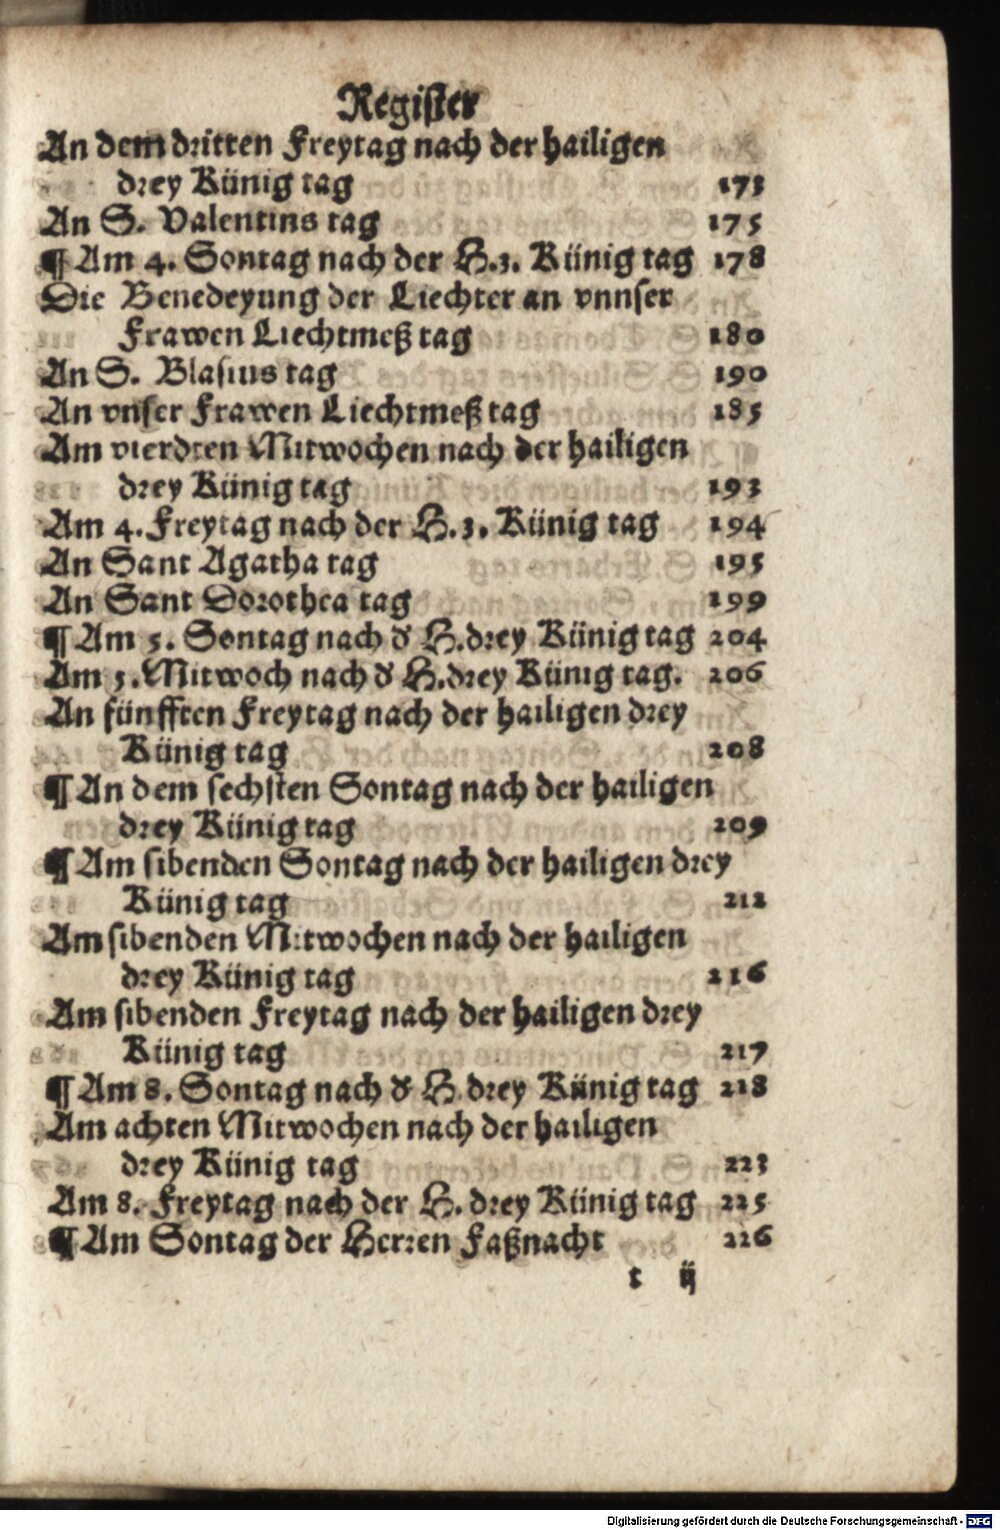 Register
An dem dritten Freytag nach der hailigen
drey Künig tag 173
An S. Valentins tag 175
¶ Am 4. Sontag nach der H.3. Künig tag 178
Die Benedeyung der Liechter an vnnser
Frawen Liechtmeß tag 180
An S. Blasius tag 190
An vnser Frawen Liechtmeß tag 185
Am vierdten Mitwochen nach der hailigen
drey Künig tag 193
Am 4. Freytag nach der H.3. Künig tag 194
An Sant Agatha tag 195
An Sant Dorothea tag 199
¶ Am 5. Sontag nach d' H.drey Künig tag 204
Am 5. Mitwoch nach d' H.drey Künig tag. 206
An fünfften Freytag nach der hailigen drey
Künig tag 208
¶ An dem sechsten Sontag nach der hailigen
drey Künig tag 209
¶ Am sibenden Sontag nach der hailigen drey
Künig tag 212
Am sibenden Mitwochen nach der hailigen
drey Künig tag 216
Am sibenden Freytag nach der hailigen drey
Künig tag 217
¶ Am 8. Sontag nach d' H. drey Künig tag 218
Am achten Mitwochen nach der hailigen
drey Künig tag 223
Am 8. Freytag nach der H. drey Künig tag 225
¶ Am Sontag der Herren Faßnacht 226
t ij
Digitalisierung gefördert durch die Deutsche Forschungsgemeinschaft - DFG